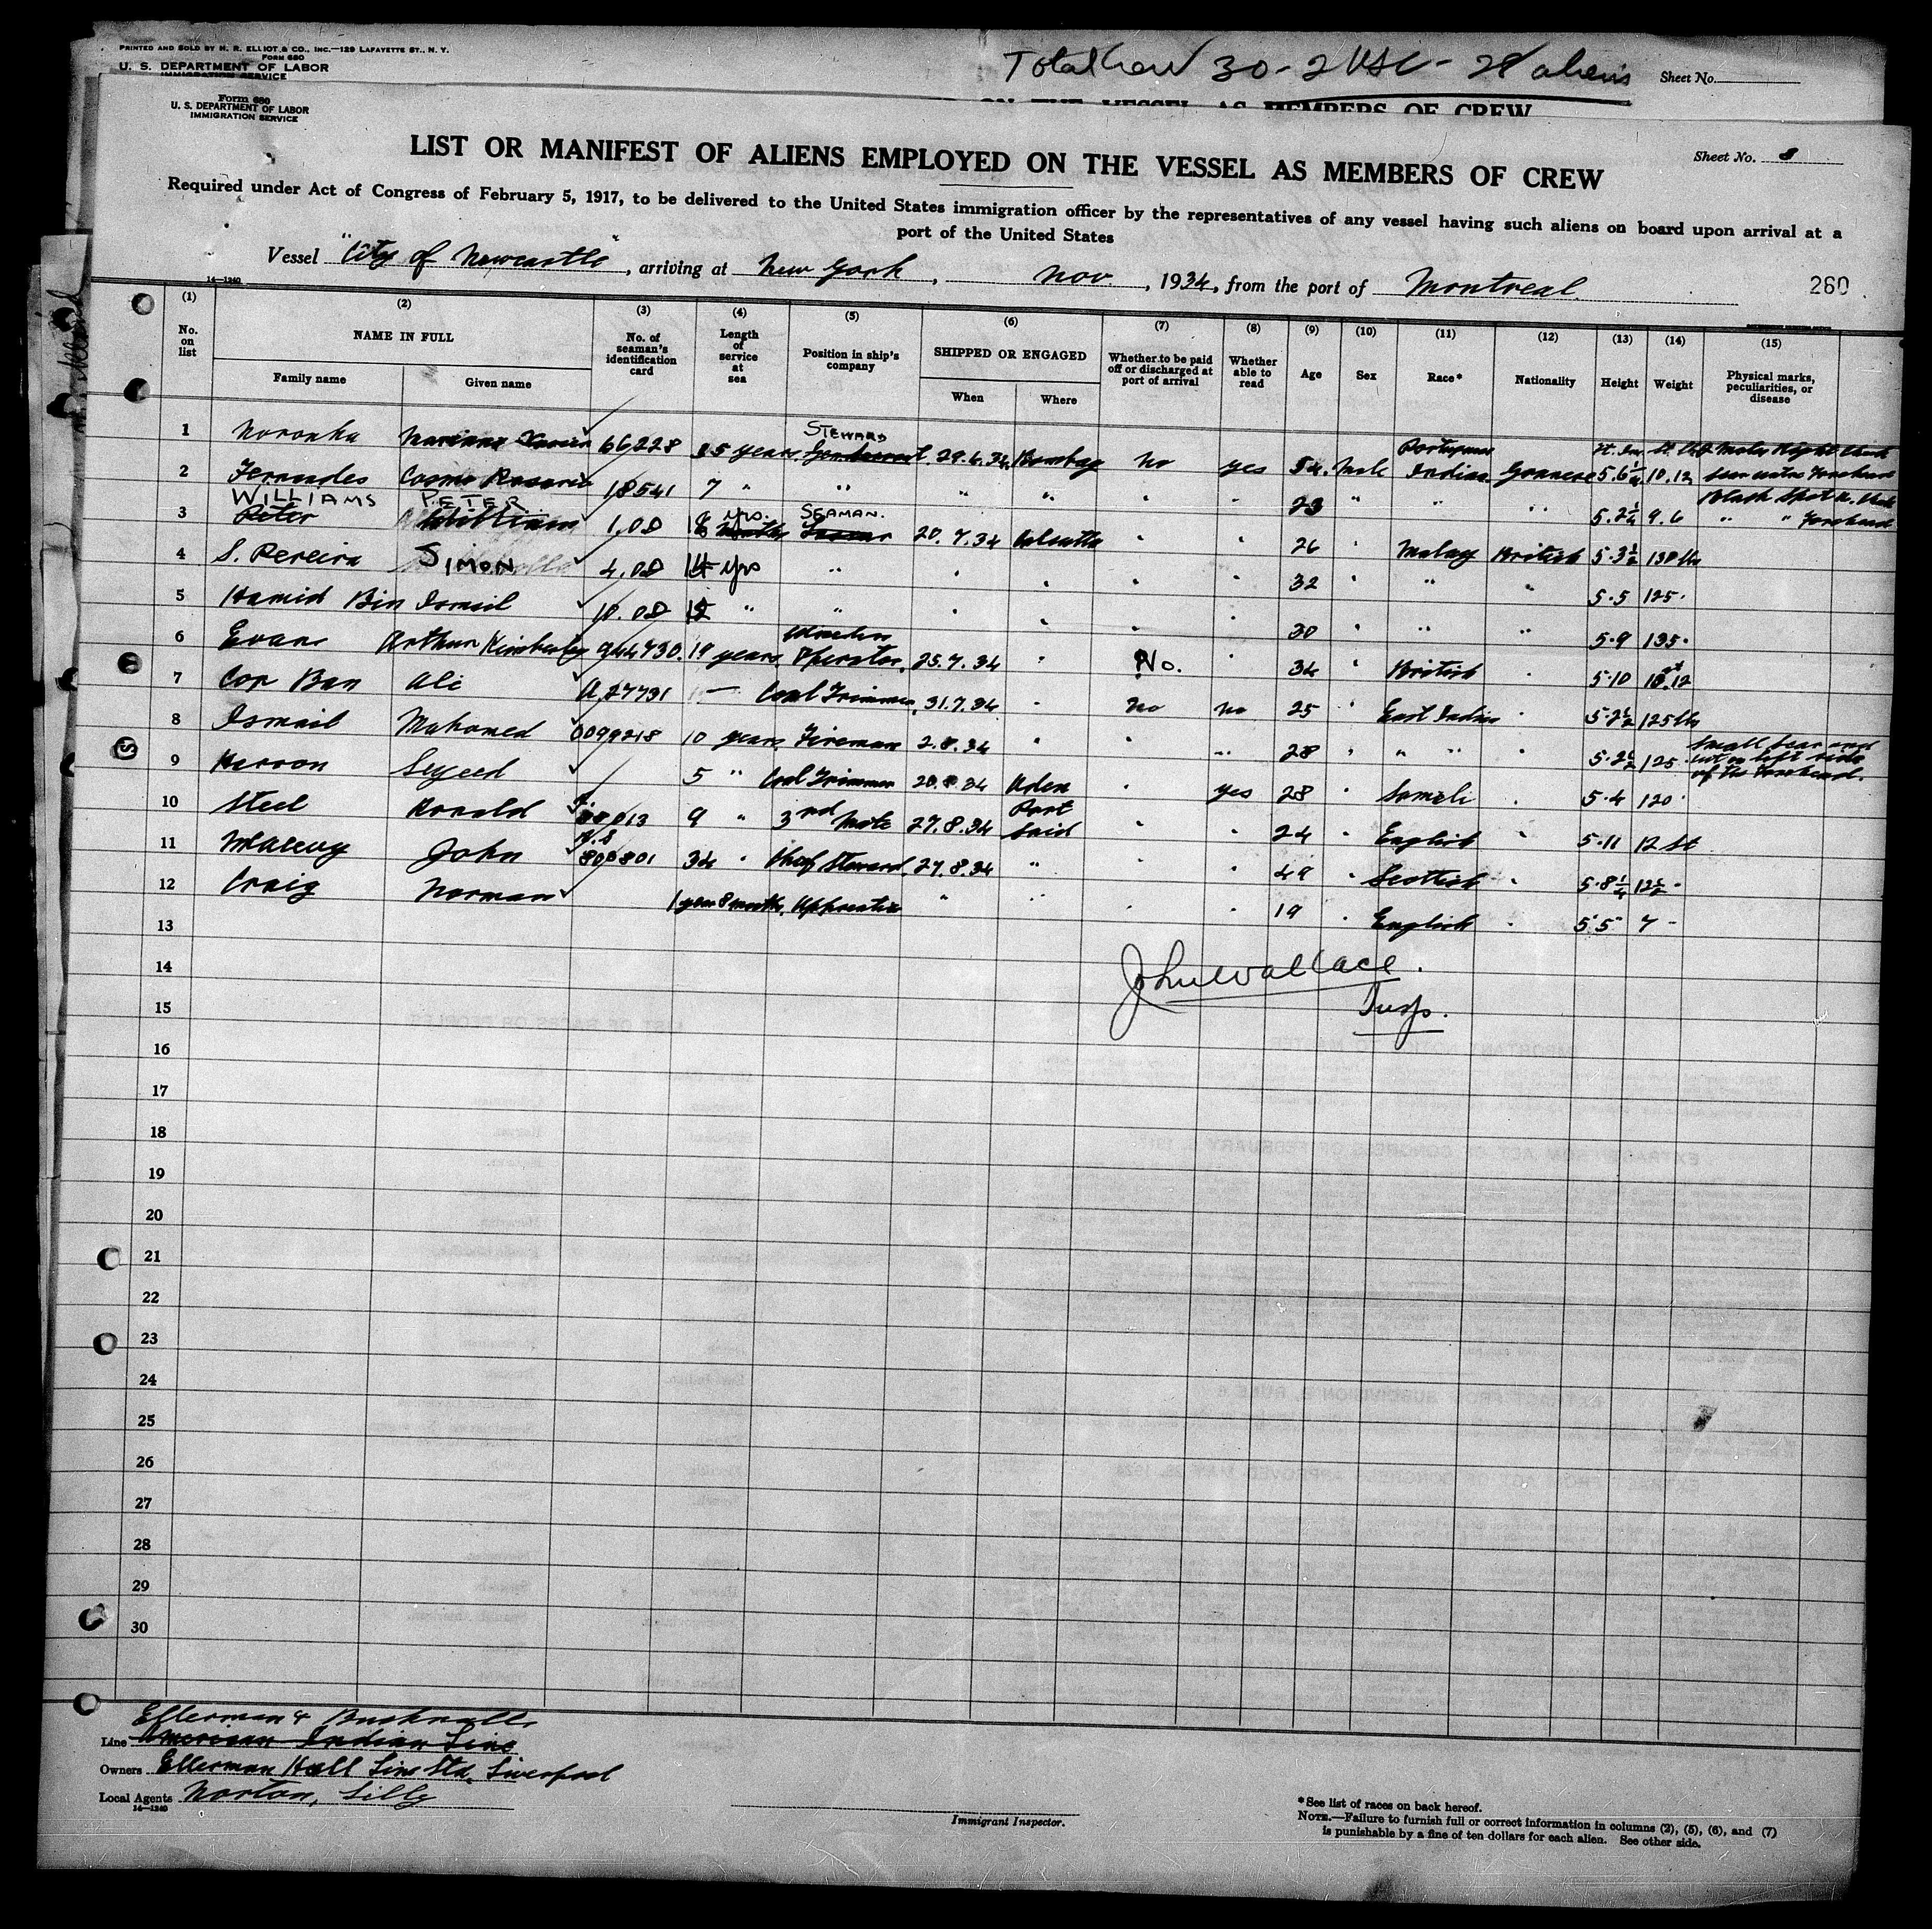 PRINTED AND SOLD BY H. R. ELLIOT & CO., INC.—129 LAFAYETTE ST., N. Y.
FORM 680
U. S. DEPARTMENT OF LABOR
IMMIGRATION SERVICE
Total Crew 30 - 2 USC - 28 aliens
Sheet No.
ON THE VESSEL AS MEMBERS OF CREW
Form 680
U. S. DEPARTMENT OF LABOR
IMMIGRATION SERVICE
LIST OR MANIFEST OF ALIENS EMPLOYED ON THE VESSEL AS MEMBERS OF CREW
Sheet No. 3
Required under Act of Congress of February 5, 1917, to be delivered to the United States immigration officer by the representatives of any vessel having such aliens on board upon arrival at a
port of the United States
Vessel "City of Newcastle", arriving at New York, Nov., 1934, from the port of Montreal
14—1240
260
(1) (2) (3) (4) (5) (6) (7) (8) (9) (10) (11) (12) (13) (14) (15)
No. on list
NAME IN FULL
Family name
Given name
No. of seaman's identification card
Length of service at sea
Position in ship's company
SHIPPED OR ENGAGED
When
Where
Whether to be paid off or discharged at port of arrival
Whether able to read
Age
Sex
Race*
Nationality
Height
Weight
Physical marks, peculiarities, or disease
1 Noronha 66228 25 years STEWARD 29.6.34 Bombay No yes 54 Male Portuguese Indian Goanese 5.6¼ 10.12
2 Fernandes Cosmo Rosario 18541 7 " " " " " " 23 " " " 5.2¼ 9.6
3 WILLIAMS PETER Peter William 1.08 yrs. SEAMAN. 20.7.34 Calcutta " " 26 " Malay British 5.3½ 130 lbs
4 S. Pereira SIMON 4.08 14 yrs " " " " " 32 " " " 5.5 125
5 Hamid Bin Ismail 10.08 12 " " " " " " 30 " " " 5.9 135
6 Evans Arthur Kimberley 944730 19 years Wireless Operator 25.7.34 " No. " 34 " British " 5.10 10.12
7 Cop Ban Ali A 27791 — Coal Trimmer 31.7.34 " No no 25 " East Indian " 5.2½ 125 lbs
8 Ismail Mahomed 0099218 10 years Fireman 2.8.34 " " " 28 " " " " 5.2½ 125 small scar and cut on left side of his forehead.
9 Harron Seyeed 5 " Coal Trimmer 20.8.34 Aden " yes 28 " Somali " 5.4 120
10 Steel Ronald 9 " 3rd Mate 27.8.34 Port Said " " 24 " English " 5.11 12 st
11 John 800801 34 " Chief Steward 27.8.34 " " " 49 " Scottish " 5.8¼ 12½
12 Craig Norman 1 year 8 months Apprentice " " " " 19 " English " 5.5 7
13
14
John Wallace
15
Insp.
16
17
18
19
20
21
22
23
24
25
26
27
28
29
30
Ellerman & Bucknall
Line American Indian Line
Owners Ellerman Hall Line Ltd, Liverpool
Local Agents Norton, Lilly
14—1240
Immigrant Inspector.
*See list of races on back hereof.
NOTE.—Failure to furnish full or correct information in columns (2), (5), (6), and (7)
is punishable by a fine of ten dollars for each alien. See other side.